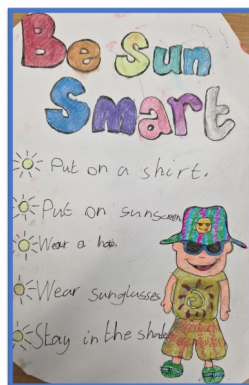 Be Sun
Smart
Put on a shirt.
Put on sunscreen
Wear a hat.
Wear sunglasses
Stay in the shade